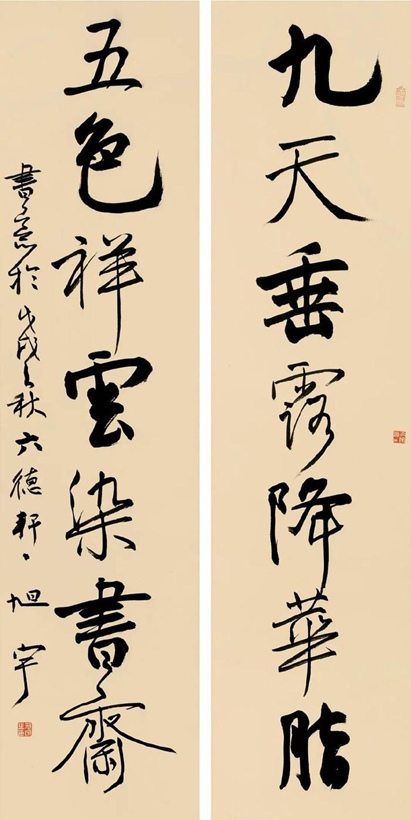 九天垂露降華脂
五色祥雲染書齋
書意於戊戌之秋六德軒 旭宇